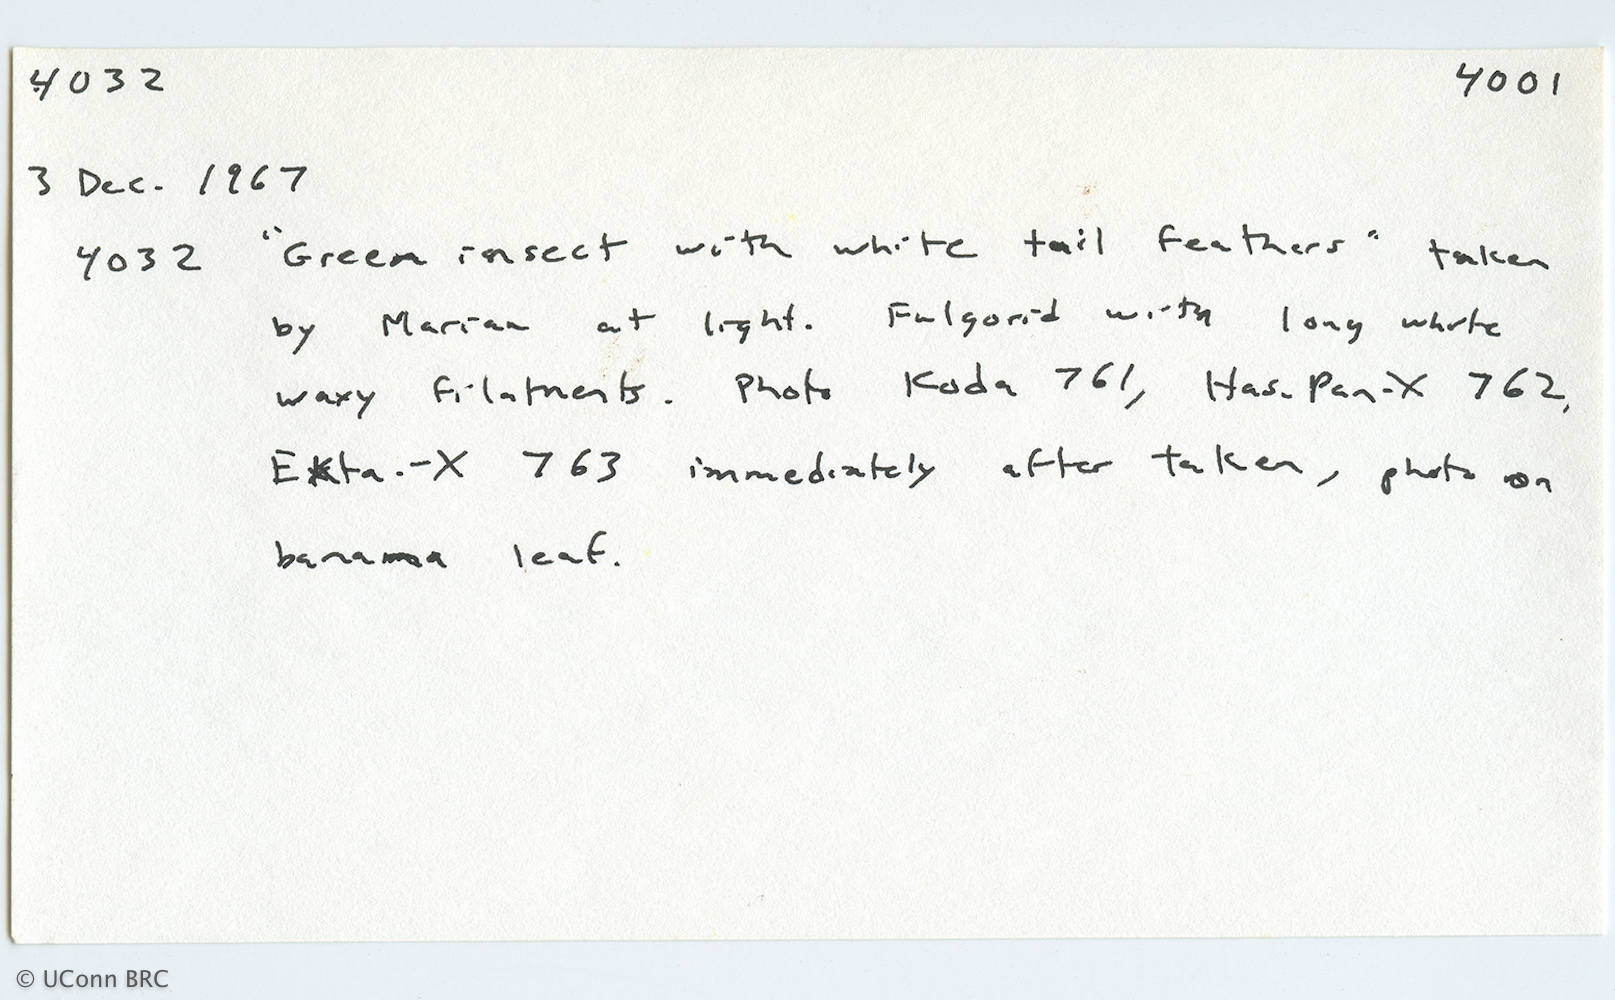 4032 4001
3 Dec. 1967
4032 "Green insect with white tail feathers" taken
by Marian at light. Fulgorid with long white
waxy filatments. Photo Koda 761, Has. Pan-X 762,
Ekta.-X 763 immediately after taken, photo on
banana leaf.
© UConn BRC